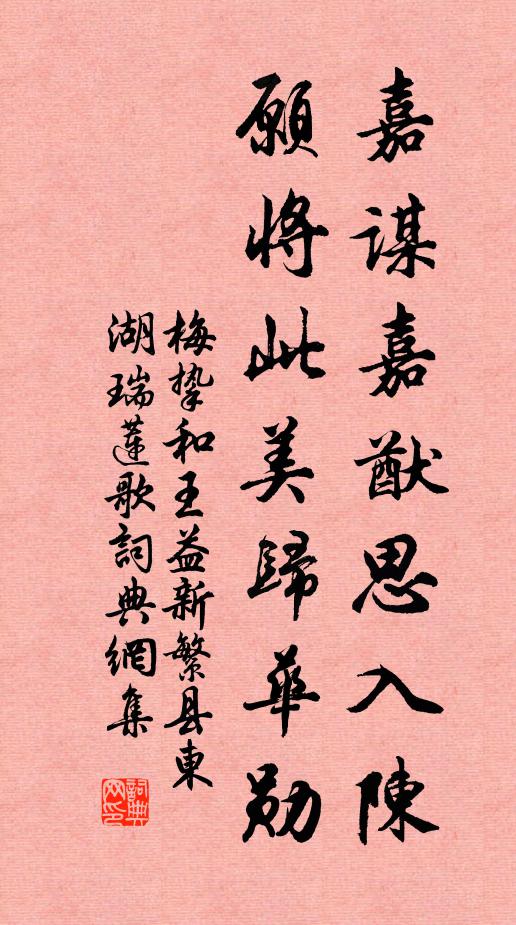 嘉謀嘉猷思入陳
願將此美歸華勛
梅挚和王益新繁县東
湖瑞蓮歌詞典網集
詞典网印